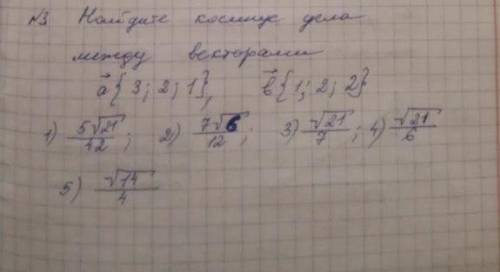 №3 Найдите косинус угла
между векторами
a⃗{3; 2; 1}, b⃗{1; 2; 2}
1) 5√21/42; 2) 7√6/12; 3) √21/7; 4) √21/6
5) √14/4